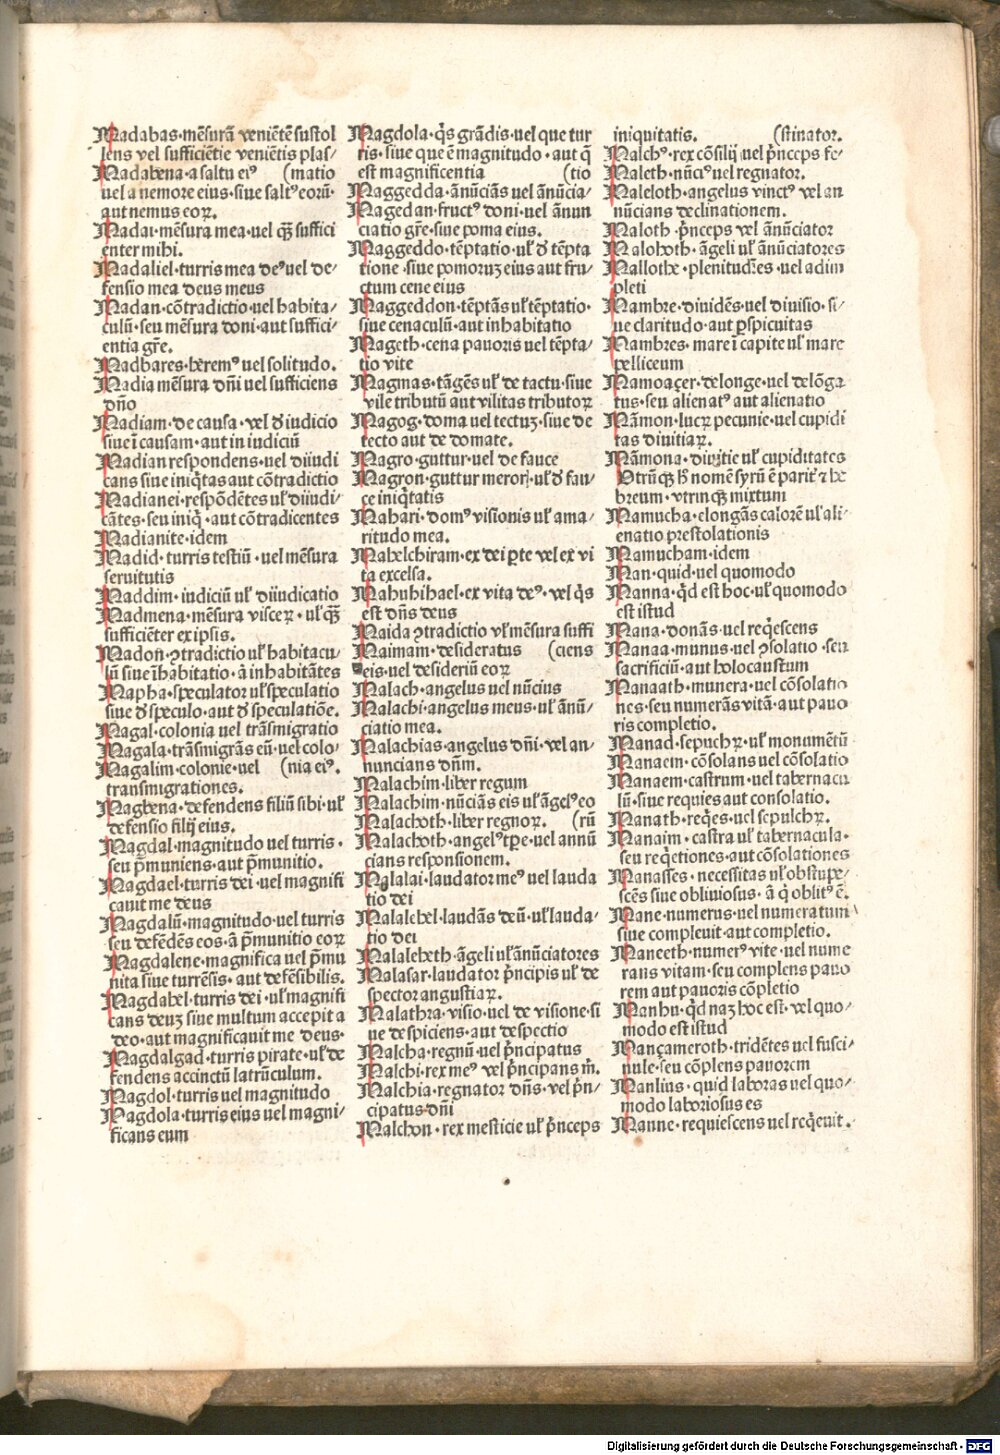 Madabas·mēsurā veniētē sustol
lens vel sufficiētie veniētis plas⸗
Madabena·a saltu ei⁹ (matio
uel a nemore eius·siue salt⁹ eorū·
aut nemus eoꝝ.
Madai·mēsura mea·vel qꝫ suffici
enter mihi.
Madaliel·turris mea de⁹ uel de⸗
fensio mea deus meus
Madan·cōtradictio·uel habita⸗
culū·seu mēsura doni·aut suffici⸗
entia gr̄e.
Madbares·herem⁹ uel solitudo.
Madia mēsura dn̄i uel sufficiens
dn̄o
Madiam·de causa·vel ꝺ̓ iudicio
siue ī causam·aut in iudiciū
Madian respondens·uel diiudi
cans siue iniq̇tas aut cōtradictio
Madianei·respōdētes ul̓ diiudi⸗
cātes·seu iniq̇·aut cōtradicentes
Madianite·idem
Madid·turris testiū·uel mēsura
seruitutis
Maddim·iudiciū ul̓ diiudicatio
Madmena·mēsura visceꝝ·ul̓ qꝫ
sufficiēter ex ipsis.
Madon·ꝯtradictio ul̓ habitacu⸗
lū siue īhabitatio·a inhabitātes
Mapha·speculator ul̓ speculatio
siue ꝺ̓ speculo·aut ꝺ̓ speculatiōe.
Magal·colonia uel trāsmigratio
Magala·trāsmigrās eū·uel colo⸗
Magalim·colonie·uel (nia ei⁹.
transmigrationes.
Magbena·defendens filiū sibi·ul̓
defensio filij eius.
Magdal·magnitudo uel turris·
seu p̄muniens·aut p̄munitio.
Magdael·turris dei·uel magnifi
cauit me deus
Magdalū·magnitudo·uel turris
seu defēdēs eos·a p̄munitio eoꝝ
Magdalene·magnifica uel p̄mu
nita siue turrēsis·aut defēsibilis.
Magdabel·turris dei·ul̓ magnifi
cans deuꝫ siue multum accepit a
deo·aut magnificauit me deus·
Magdalgad·turris pirate·ul̓ de
fendens accinctū latrūculum.
Magdol·turris uel magnitudo
Magdola·turris eius uel magni⸗
ficans eum
Magdola·q̇s grādis·uel que tur
ris·siue que ē magnitudo·aut q̄
est magnificentia (tio
Maggedda·ānūciās uel ānūcia⸗
Magedan·fruct⁹ doni·uel ānun
ciatio gr̄e·siue poma eius.
Maggeddo·tēptatio·ul̓ ꝺ̓ tēpta
tione·siue pomoruꝫ eius aut fru⸗
ctum cene eius
Maggeddon·tēptās ul̓ tēptatio·
siue cenaculū·aut inhabitatio
Mageth·cena pauoris uel tēpta⸗
tio vite
Magmas·tāgēs ul̓ de tactu·siue
vile tributū aut vilitas tributoꝝ
Magog·doma uel tectuꝫ·siue de
tecto aut de domate.
Magro·guttur·uel de fauce
Magron·guttur meroꝛ̓·ul̓ ꝺ̓ fau⸗
ce iniq̇tatis
Mahari·dom⁹ visionis ul̓ ama⸗
ritudo mea.
Mahelchiram·ex dei ꝑte vel ex vi
ta excelsa.
Mahuhihael·ex vita de⁹·vel q̇s
est dn̄s deus
Maida ꝯtradictio vl̓ mēsura suffi
Maimam·desideratus (ciens
eis·uel desideriū eoꝝ
Malach·angelus uel nūcius
Malachi·angelus meus·ul̓ ānū⸗
ciatio mea.
Malachias·angelus dn̄i·vel an⸗
nuncians dn̄m.
Malachim·liber regum
Malachim·nūciās eis ul̓ āgel⁹ eo
Malachoth·liber regnoꝝ. (rū
Malachoth·angel⁹ tp̄e·uel annū
cians responsionem.
Malalai·laudator me⁹ uel lauda
tio dei
Malalehel·laudās deū·ul̓ lauda⸗
tio dei
Malaleheth·āgeli ul̓ ānūciatores
Malasar·laudator p̄ncipis ul̓ de
spector angustiaꝝ.
Malathra·visio·uel de visione·si
ue despiciens·aut despectio
Malcha·regnū·uel p̄ncipatus
Malchi·rex me⁹ vel p̄ncipans m̄.
Malchia·regnator dn̄s·vel p̄n⸗
cipatus·dn̄i
Malchon·rex mesticie ul̓ p̄nceps
iniquitatis. (stinator.
Malch⁹·rex cōsilij uel p̄nceps fe⸗
Maleth·nūci⁹ uel regnator.
Maleloth·angelus vinct⁹ vel an
nūcians declinationem.
Maloth·p̄nceps vel ānūciator
Malohoth·āgeli ul̓ ānūciatores
Mallothe·plenitudīes·uel adim
pleti
Mambre·diuidēs·uel diuisio·si⸗
ue claritudo·aut ꝑspicuitas
Mambres·mare ī capite ul̓ mare
pelliceum
Mamoaçer·delonge·uel delōga
tus·seu alienat⁹ aut alienatio
Māmon·lucꝝ pecunie·uel cupidi
tas diuitiaꝝ.
Māmona·diuitie ul̓ cupiditates
Vtrūqꝫ hꝰ nomē syrū ē pariṫ ⁊ he
breum·vtrinqꝫ mixtum
Mamucha·elongās calorē ul̓ ali⸗
enatio prestolationis
Mamucham·idem
Man·quid·uel quomodo
Manna·q̇d est hoc·ul̓ quomodo
est istud
Mana·donās·uel req̇escens
Manaa·munus·uel ꝯsolatio·seu
sacrificiū·aut holocaustum
Manaath·munera·uel cōsolatio
nes·seu numerās vitā·aut pauo
ris completio.
Manad·sepuchꝝ·ul̓ monumētū
Manaem·cōsolans uel cōsolatio
Manaem·castrum·uel tabernacu
lū·siue requies aut consolatio.
Manath·req̇es·uel sepulchꝝ.
Manaim·castra ul̓ tabernacula·
seu req̇etiones·aut cōsolationes
Manasses·necessitas ul̓ obstupe⸗
scēs siue obliuiosus·a q̇ oblit⁹ ē.
Mane·numerus·uel numeratum
siue compleuit·aut completio.
Maneeth·numer⁹ vite·uel nume
rans vitam·seu complens pauo
rem aut pauoris cōpletio
Manhu·q̇d naꝫ hoc est·vel quo⸗
modo est istud
Mançameroth·tridētes uel fusci⸗
nule·seu cōplens pauorem
Manlius·quid laboras uel quo⸗
modo laboriosus es
Manne·requiescens uel req̇euit.
Digitalisierung gefördert durch die Deutsche Forschungsgemeinschaft - DFG